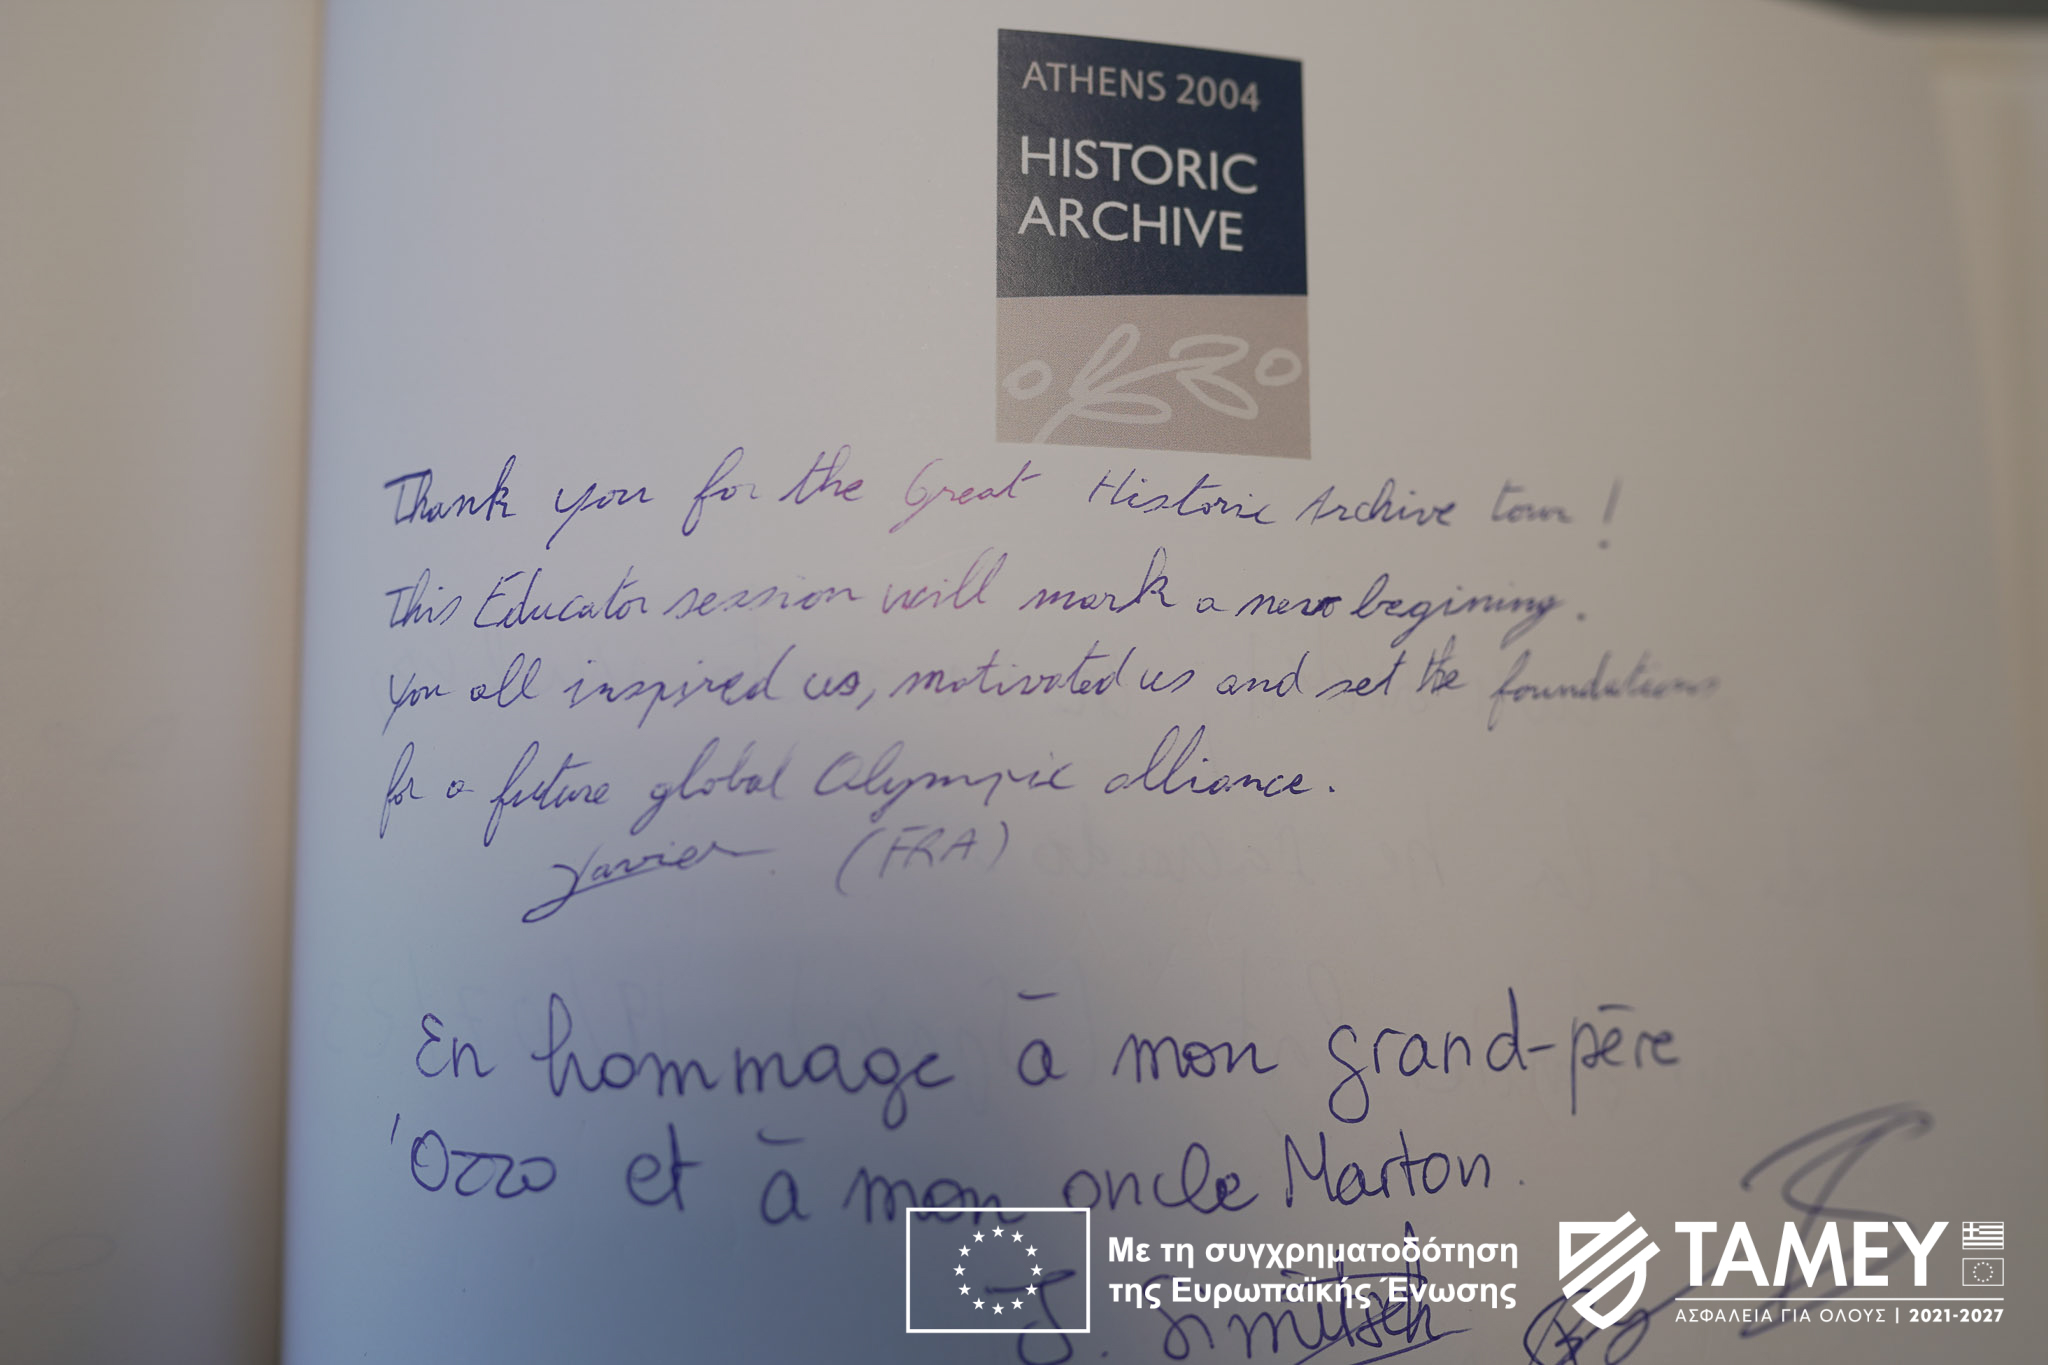 ATHENS 2004
HISTORIC
ARCHIVE
Thank you for the Great Historic Archive tour!
This Educator session will mark a new begining.
You all inspired us, motivated us and set the foundations
for a future global Olympic alliance.
Xavier (FRA)
En hommage à mon grand-père
'Ozzo et à mon oncle Marton.
J.
Με τη συγχρηματοδότηση
της Ευρωπαϊκής Ένωσης
TAMEY
ΑΣΦΑΛΕΙΑ ΓΙΑ ΟΛΟΥΣ | 2021-2027